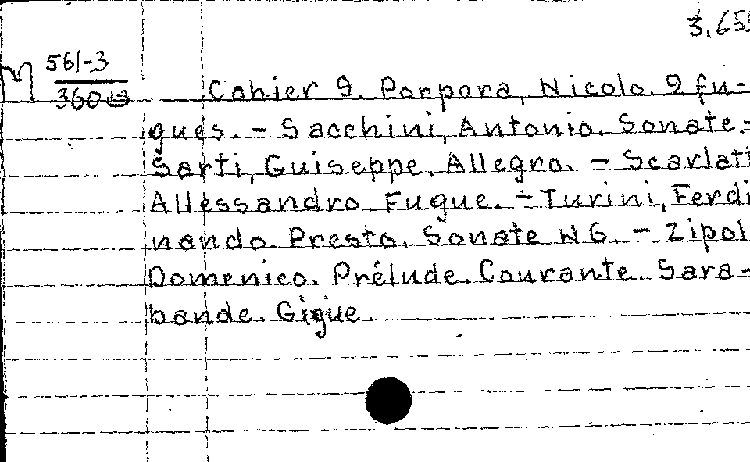 3,655
M 561-3
360
Cahier 9. Porpora, Nicolo. 9 fu-
gues. - Sacchini, Antonio. Sonate.-
Sarti, Guiseppe. Allegro. - Scarlatt
Allessandro. Fugue. - Turini, Ferdi
nando. Presto. Sonate N 6. - Zipol
Domenico. Prélude. Courante. Sara-
bande. Gigue.